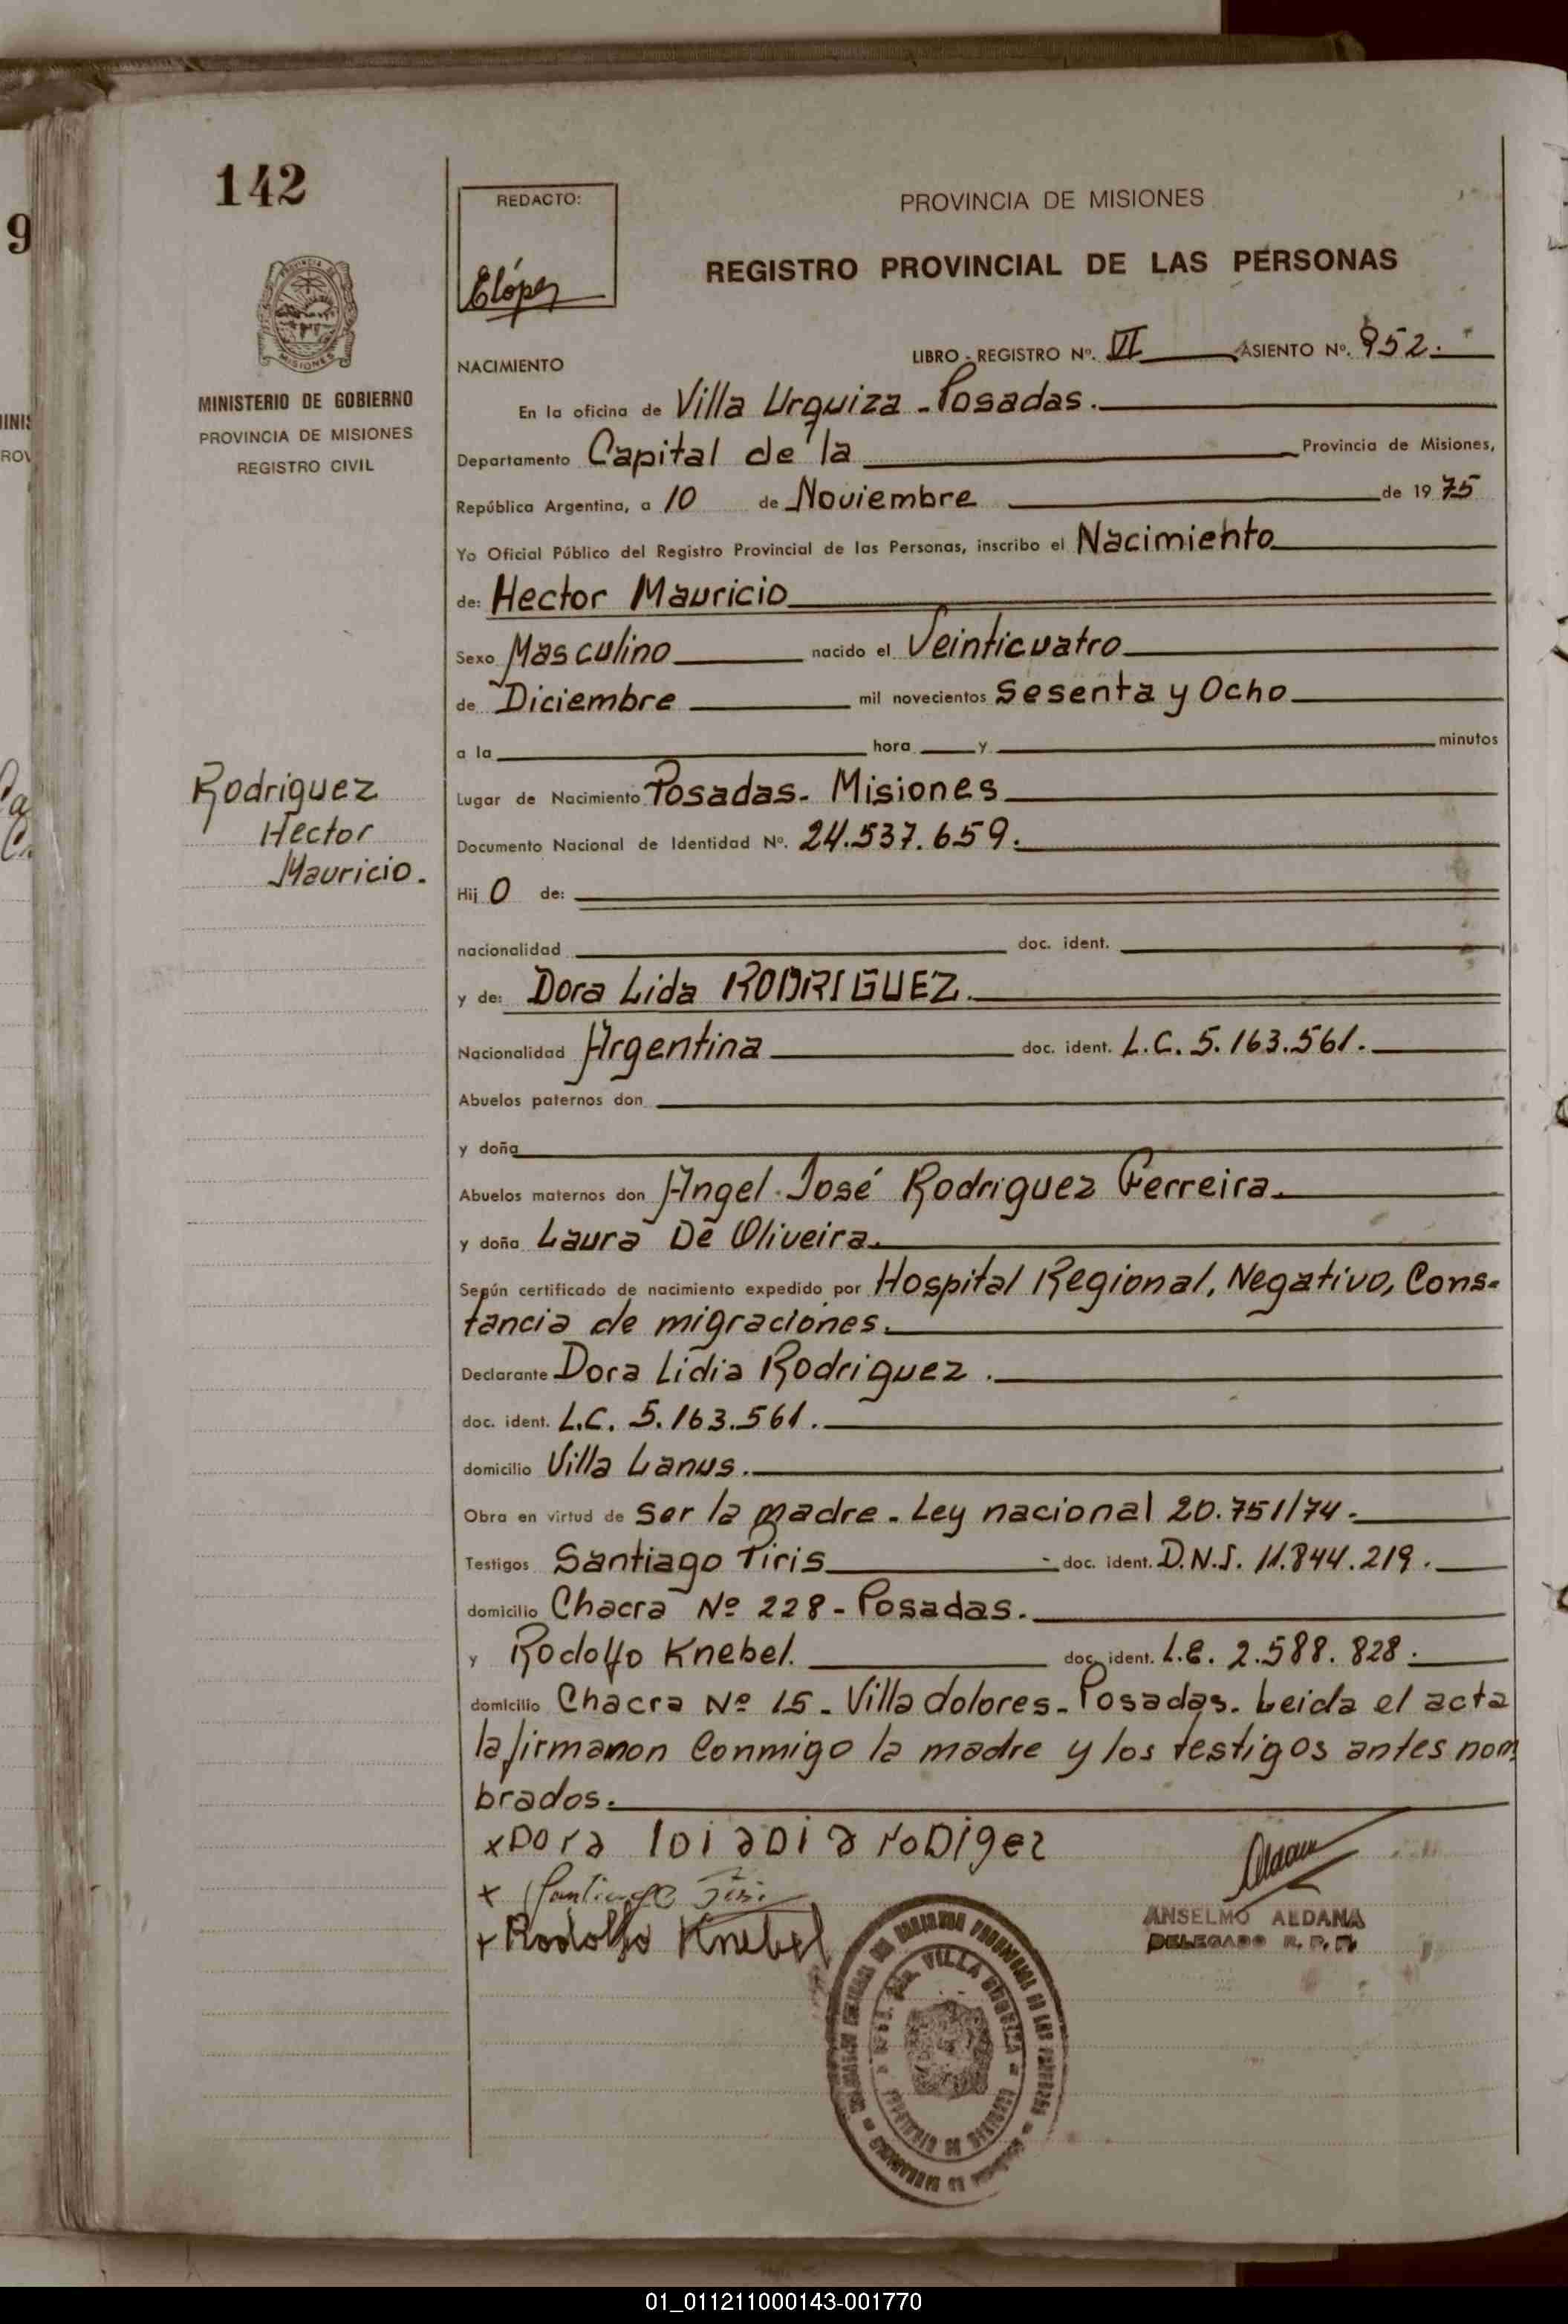 142
9
REDACTO:
Elópez
PROVINCIA DE MISIONES
REGISTRO PROVINCIAL DE LAS PERSONAS
MINISTERIO DE GOBIERNO
PROVINCIA DE MISIONES
REGISTRO CIVIL
NACIMIENTO
LIBRO - REGISTRO Nº. VI ASIENTO Nº. 952.
En la oficina de Villa Urquiza - Posadas.
Departamento Capital de la Provincia de Misiones,
República Argentina, a 10 de Noviembre de 1975
Yo Oficial Público del Registro Provincial de las Personas, inscribo el Nacimiento
de: Hector Mauricio
Sexo Masculino nacido el Veinticuatro
de Diciembre mil novecientos Sesenta y Ocho
a la hora y minutos
Rodriguez
Hector
Mauricio.
Lugar de Nacimiento Posadas - Misiones
Documento Nacional de Identidad Nº. 24.537.659.
Hij O de:
nacionalidad doc. ident.
y de: Dora Lida RODRIGUEZ.
Nacionalidad Argentina doc. ident. L.C. 5.163.561.
Abuelos paternos don
y doña
Abuelos maternos don Angel José Rodriguez Ferreira.
y doña Laura De Oliveira.
Según certificado de nacimiento expedido por Hospital Regional, Negativo, Cons-
tancia de migraciones.
Declarante Dora Lidia Rodriguez.
doc. ident. L.C. 5.163.561.
domicilio Villa Lanus.
Obra en virtud de ser la madre - Ley nacional 20.751/74.
Testigos Santiago Piris doc. ident. D.N.I. 11.844.219.
domicilio Chacra Nº 228 - Posadas.
y Rodolfo Knebel. doc. ident. L.E. 2.588.828.
domicilio Chacra Nº 15 - Villa dolores - Posadas. Leida el acta
la firmanon conmigo la madre y los testigos antes nom
brados.
x Dora loi aDi a roDiger
x Santiago Piris
x Rodolfo Knebel
ANSELMO ALDANA
DELEGADO R. P. P.
VILLA URQUIZA
01_011211000143-001770